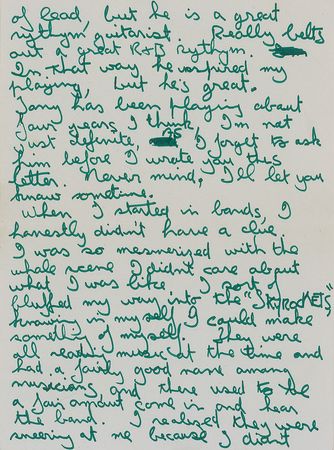 of lead, but he is a great
rythym guitarist. Really belts
out a great R+B Rythym.
In that way he inspired my
playing, but he's great.
Tony has been playing about
four years, I think. I'm not
just definite, as I forget to ask
him before I wrote you this
letter. Never mind, I'll let you
know sometime.
When I started in bands, I
honestly didn't have a clue.
I was so mesmerized with the
whole scene I didn't care about
what I was like. I sort of
bluffed my way into the "SKYROCKETS"
knowing in my self I could make
something of myself. They were
all reading music at the time and
had a fairly good name among
musicians, and there used to be
a fair amount come in and hear
the band. I realised they were
sneering at me because I didn't